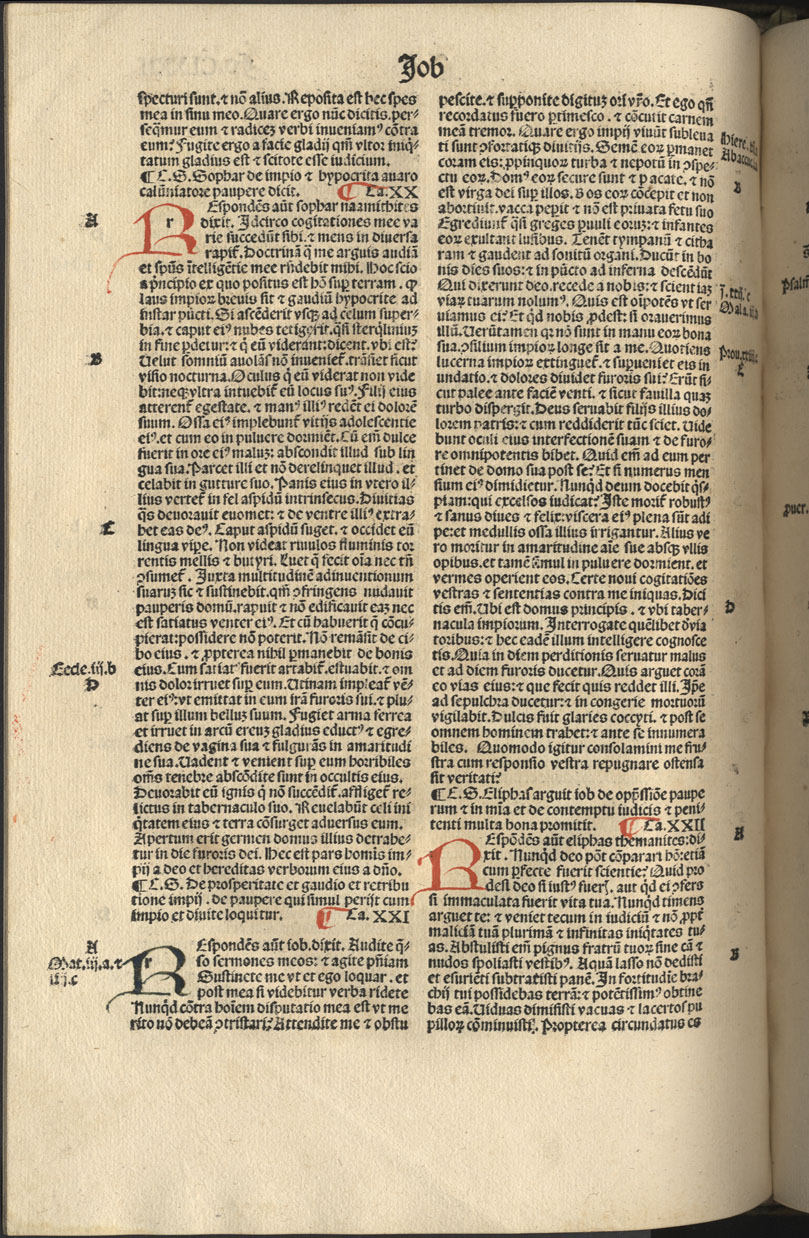 Job
specturi sunt. ⁊ nō alius. Reposita est hec spes
mea in sinu meo. Quare ergo nūc dicitis. per-
seq̄mur eum ⁊ radicez verbi inueniamꝰ cōtra
eum? Fugite ergo a facie gladij qm̄ vltor iniq̄-
tatum gladius est ⁊ scitote esse iudicium.
¶ C. S. Sophar de impio ⁊ hypocrita auaro
calūniatore paupere dicit. ¶ Ca. XX
A
REspondēs aūt sophar naamithites
dixit. Idcirco cogitationes mee va
rie succedūt sibi. ⁊ mens in diuersa
rapit̄. Doctrinā q̄ me arguis audiā
et spūs ītelligētie mee rn̄debit mihi. Hoc scio
a pͥncipio ex quo positus est hō suꝑ terram. ꝙ
laus impioꝝ breuis sit ⁊ gaudiū hypocrite ad
instar pūcti. Si ascēderit vsqꝫ ad celum super-
bia. ⁊ caput eiꝰ nubes tetigerit. q̄si sterq̄liniuz
in fine ꝑdetur: ⁊ q̄ eū viderant: dicent. vbi est?
B
Uelut somniū auolās nō inueniet̄. trāsiet sicut
visio nocturna. Oculus q̄ eū viderat non vide
bit: neqꝫ vltra intuebit̄ eū locus suꝰ. Filij eius
atterent̄ egestate. ⁊ manꝰ illiꝰ reddēt ei dolorē
suum. Ossa eiꝰ implebunt̄ vitijs adolescentie
eiꝰ. et cum eo in puluere dormiēt. Cū em̄ dulce
fuerit in ore eiꝰ maluz: abscondit illud sub lin
gua sua. Parcet illi et nō derelinquet illud. et
celabit in gutture suo. Panis eius in vtero il-
lius vertet̄ in fel aspidū intrinsecus. Diuitias
q̄s deuorauit euomet: ⁊ de ventre illiꝰ extra-
C
het eas deꝰ. Caput aspidū suget. ⁊ occidet eū
lingua viꝑe. Non videat riuulos fluminis tor
rentis mellis ⁊ butyri. Luet q̄ fecit oīa nec tn̄
ꝯsumet̄. Juxta multitudinē adinuentionum
suaruz sic ⁊ sustinebit. qm̄ ꝯfringens nudauit
pauperis domū. rapuit ⁊ nō edificauit eaz nec
est satiatus venter eiꝰ. Et cū habuerit q̄ cōcu-
pierat: possidere nō poterit. Nō remāsit de ci-
bo eius. ⁊ ꝓpterea nihil ꝑmanebit de bonis
Eccle. iij. b
eius. Cum satiatꝰ fuerit artabit̄. estuabit. ⁊ om
D
nis dolor irruet suꝑ eum. Utinam impleat̄ vē-
ter eiꝰ: vt emittat in eum irā furoris sui. ⁊ plu-
at suꝑ illum belluz suum. Fugiet arma ferrea
et irruet in arcū ereuz gladius eductꝰ ⁊ egre-
diens de vagina sua ⁊ fulgurās in amaritudi
ne sua. Uadent ⁊ venient suꝑ eum horribiles
om̄s tenebre abscōdite sunt in occultis eius.
Deuorabit eū ignis q̄ nō succēdit̄. affliget̄ re-
lictus in tabernaculo suo. Reuelabūt celi ini
q̄tatem eius ⁊ terra cōsurget aduersus eum.
Apertum erit germen domus illius detrahe-
tur in die furoris dei. Hec est pars homīs im-
pij a deo et hereditas verborum eius a dn̄o.
¶ C. S. De prosperitate et gaudio et retribu
tione impij. de paupere qui simul perijt cum
impio et diuite loquitur. ¶ Ca. XXI
A
Mat. iij. a. ⁊
iiij. c
REspondēs aūt iob. dixit. Audite q̄-
so sermones meos: ⁊ agite pn̄iam
Sustinete me vt et ego loquar. et
post mea si videbitur verba ridete
Nunq̄d cōtra hoīem disputatio mea est vt me
rito nō debeā ꝯtristari? Attendite me ⁊ obstu
pescite. ⁊ supponite digituz ori vr̄o. Et ego qn̄
recordatus fuero ꝑtimesco. ⁊ cōcutit carnem
meā tremor. Quare ergo impij viuūt subleua
Hiere.
ti sunt ꝯfortatiqꝫ diuitijs. Semē eoꝝ ꝑmanet
Abacuc
coram eis: ꝓpinquoꝝ turba ⁊ nepotū in ꝯspe-
ctu eoꝝ. Domꝰ eoꝝ secure sunt ⁊ pacate. ⁊ nō
B
est virga dei suꝑ illos. Bos eoꝝ cōcepit et non
abortiuit. vacca peꝑit ⁊ nō est priuata fetu suo
Egrediunt̄ q̄si greges ꝑuuli eoruz: ⁊ infantes
eoꝝ exultant lusibus. Tenēt tympanū ⁊ citha
ram ⁊ gaudent ad sonitū organi. Ducūt in bo
nis dies suos: ⁊ in pūcto ad inferna descēdūt
Qui dixerunt deo. recede a nobis: ⁊ scientiaz
viaꝝ tuarum nolumꝰ. Quis est oīpotēs vt ser
Mala. iij
uiamus ei? Et qd nobis ꝓdest: si orauerimus
illū. Uerūtamen qꝛ nō sunt in manu eoꝝ bona
sua: ꝯsilium impioꝝ longe sit a me. Quotiens
lucerna impioꝝ extinguet̄. ⁊ suꝑueniet eis in
undatio. ⁊ dolores diuidet furoris sui? Erūt si-
cut palee ante faciē venti. ⁊ sicut fauilla quaz
turbo dispergit. Deus seruabit filijs illius do-
lorem patris: ⁊ cum reddiderit tūc sciet. Uide
bunt oculi eius interfectionē suam ⁊ de furo-
re omnipotentis bibet. Quid em̄ ad eum per
tinet de domo sua post se? Et si numerus men
sium eiꝰ dimidietur. Nunq̄d deum docebit q̄s-
piam: qui excelsos iudicat? Iste morit̄ robustꝰ
⁊ sanus diues ⁊ felix: viscera eiꝰ plena sūt adi
pe: et medullis ossa illius irrigantur. Alius ve
ro moritur in amaritudine aīe sue absqꝫ vllis
opibus. et tamē simul in puluere dormient. et
vermes operient eos. Certe noui cogitatiōes
vestras ⁊ sententias contra me iniquas. Dici
D
tis em̄. Ubi est domus principis. ⁊ vbi taber-
nacula impiorum. Interrogate quēlibet ð via
toribus: ⁊ hec eadē illum intelligere cognosce
tis. Quia in diem perditionis seruatur malus
et ad diem furoris ducetur. Quis arguet corā
eo vias eius: ⁊ que fecit quis reddet illi. Ip̄e
ad sepulchra ducetur: ⁊ in congerie mortuorū
vigilabit. Dulcis fuit glaries coccyti. ⁊ post se
omnem hominem trahet: ⁊ ante se innumera
biles. Quomodo igitur consolamini me fru-
stra cum responsio vestra repugnare ostensa
sit veritati?
¶ C. S. Eliphas arguit iob de opp̄ssiōe paupe
rum ⁊ in mīa et de contemptu iudicis ⁊ peni-
tenti multa bona promittit. ¶ Ca. XXII
A
REspōdēs aūt eliphas themanites: di-
xit. Nunq̄d deo pōt cōparari hō: etiā
cum ꝑfecte fuerit scientie? Quid pro
dest deo si iustꝰ fueris. aut qd ei ꝯfers
si immaculata fuerit vita tua. Nunqd timens
arguet te: ⁊ veniet tecum in iudiciū ⁊ nō ꝓpt̄
maliciā tuā plurimā ⁊ infinitas iniq̄tates tu-
B
as. Abstulisti em̄ pignus fratrū tuoꝝ sine cā ⁊
nudos spoliasti vestibꝰ. Aquā lasso nō dedisti
et esuriēti subtraxisti panē. In fortitudīe bra-
chij tui possidebas terrā: ⁊ potētissimꝰ obtine
bas eā. Uiduas dimisisti vacuas ⁊ lacertos pu
pilloꝝ cōminuisti. Propterea circundatus es